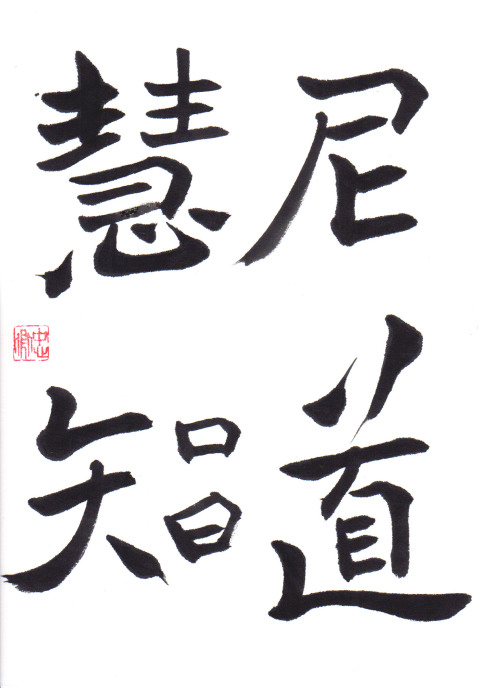 尼道
慧智